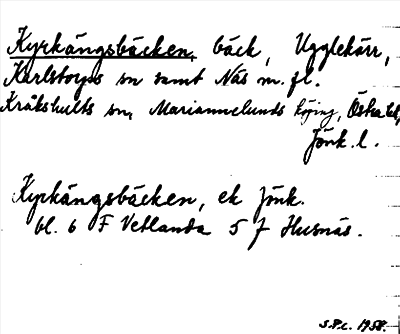 Kyrkängsbäcken, bäck, Ugglekärr,
Karlstorps sn samt Näs m. fl.
Kråkshults sn, Mariannelunds köping, Östra hd,
Jönk. l.
Kyrkängsbäcken, ek Jönk.
bl. 6 F Vetlanda 5 f Husnäs.
S.P.L. 1958.